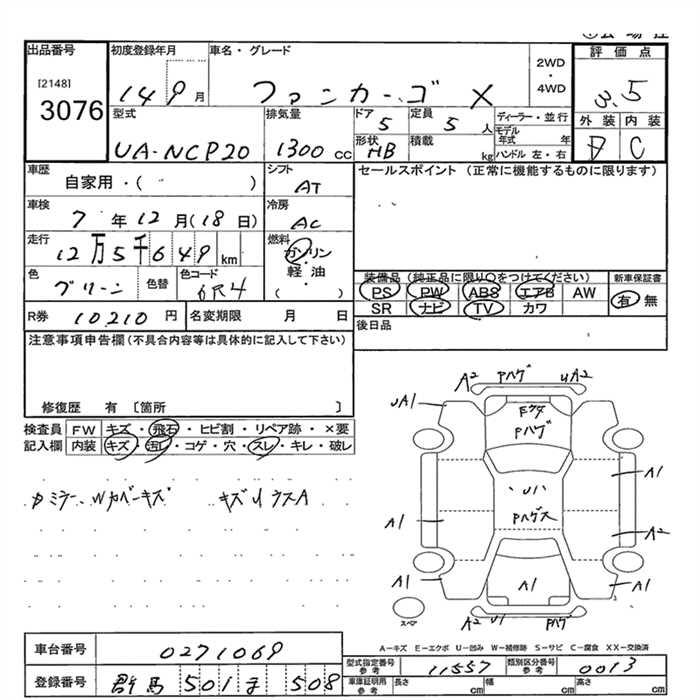 出品番号
[2148]
3076
初度登録年月
14 9月
車名・グレード
ファンカーゴ X
2WD
・
4WD
評価点
3.5
外装 内装
D C
型式
UA-NCP20
排気量
1300 cc
ドア
5
定員
5 人
形状
HB
積載
kg
ディーラー・並行
モデル年式 年
ハンドル 左・右
車歴
自家用・( )
シフト
AT
セールスポイント (正常に機能するものに限ります)
車検
7年12月(18日)
冷房
AC
走行
12万5千649 km
燃料
ガソリン
・
軽油
( )
色
グリーン
色替
色コード
6R4
装備品(純正品に限り○をつけてください)
PS PW ABS エアB AW
SR ナビ TV カワ
新車保証書
有 無
R券 10,210 円
名変期限 月 日
後日品
注意事項申告欄(不具合内容等は具体的に記入して下さい)
修復歴 有 〔箇所 〕
検査員記入欄
FW キズ・飛石・ヒビ割・リペア跡・×要
内装 キズ・汚レ・コゲ・穴・スレ・キレ・破レ
カミラー、Wカバーキズ キズUウスA
A2 Pハゲ UA2
UA1
Pハゲ
A1
U1
A1
Pハゲ大
A2
A1
A1
A1
スペア
A2 U1 Pハゲ
A-キズ E-エクボ U-凹み W-補修跡 S-サビ C-腐食 XX-交換済
車台番号 0271069
登録番号 群馬 501 す 508
型式指定番号 参考 11557
類別区分番号 参考 0013
車庫証明用 参考 長さ cm 幅 cm 高さ cm